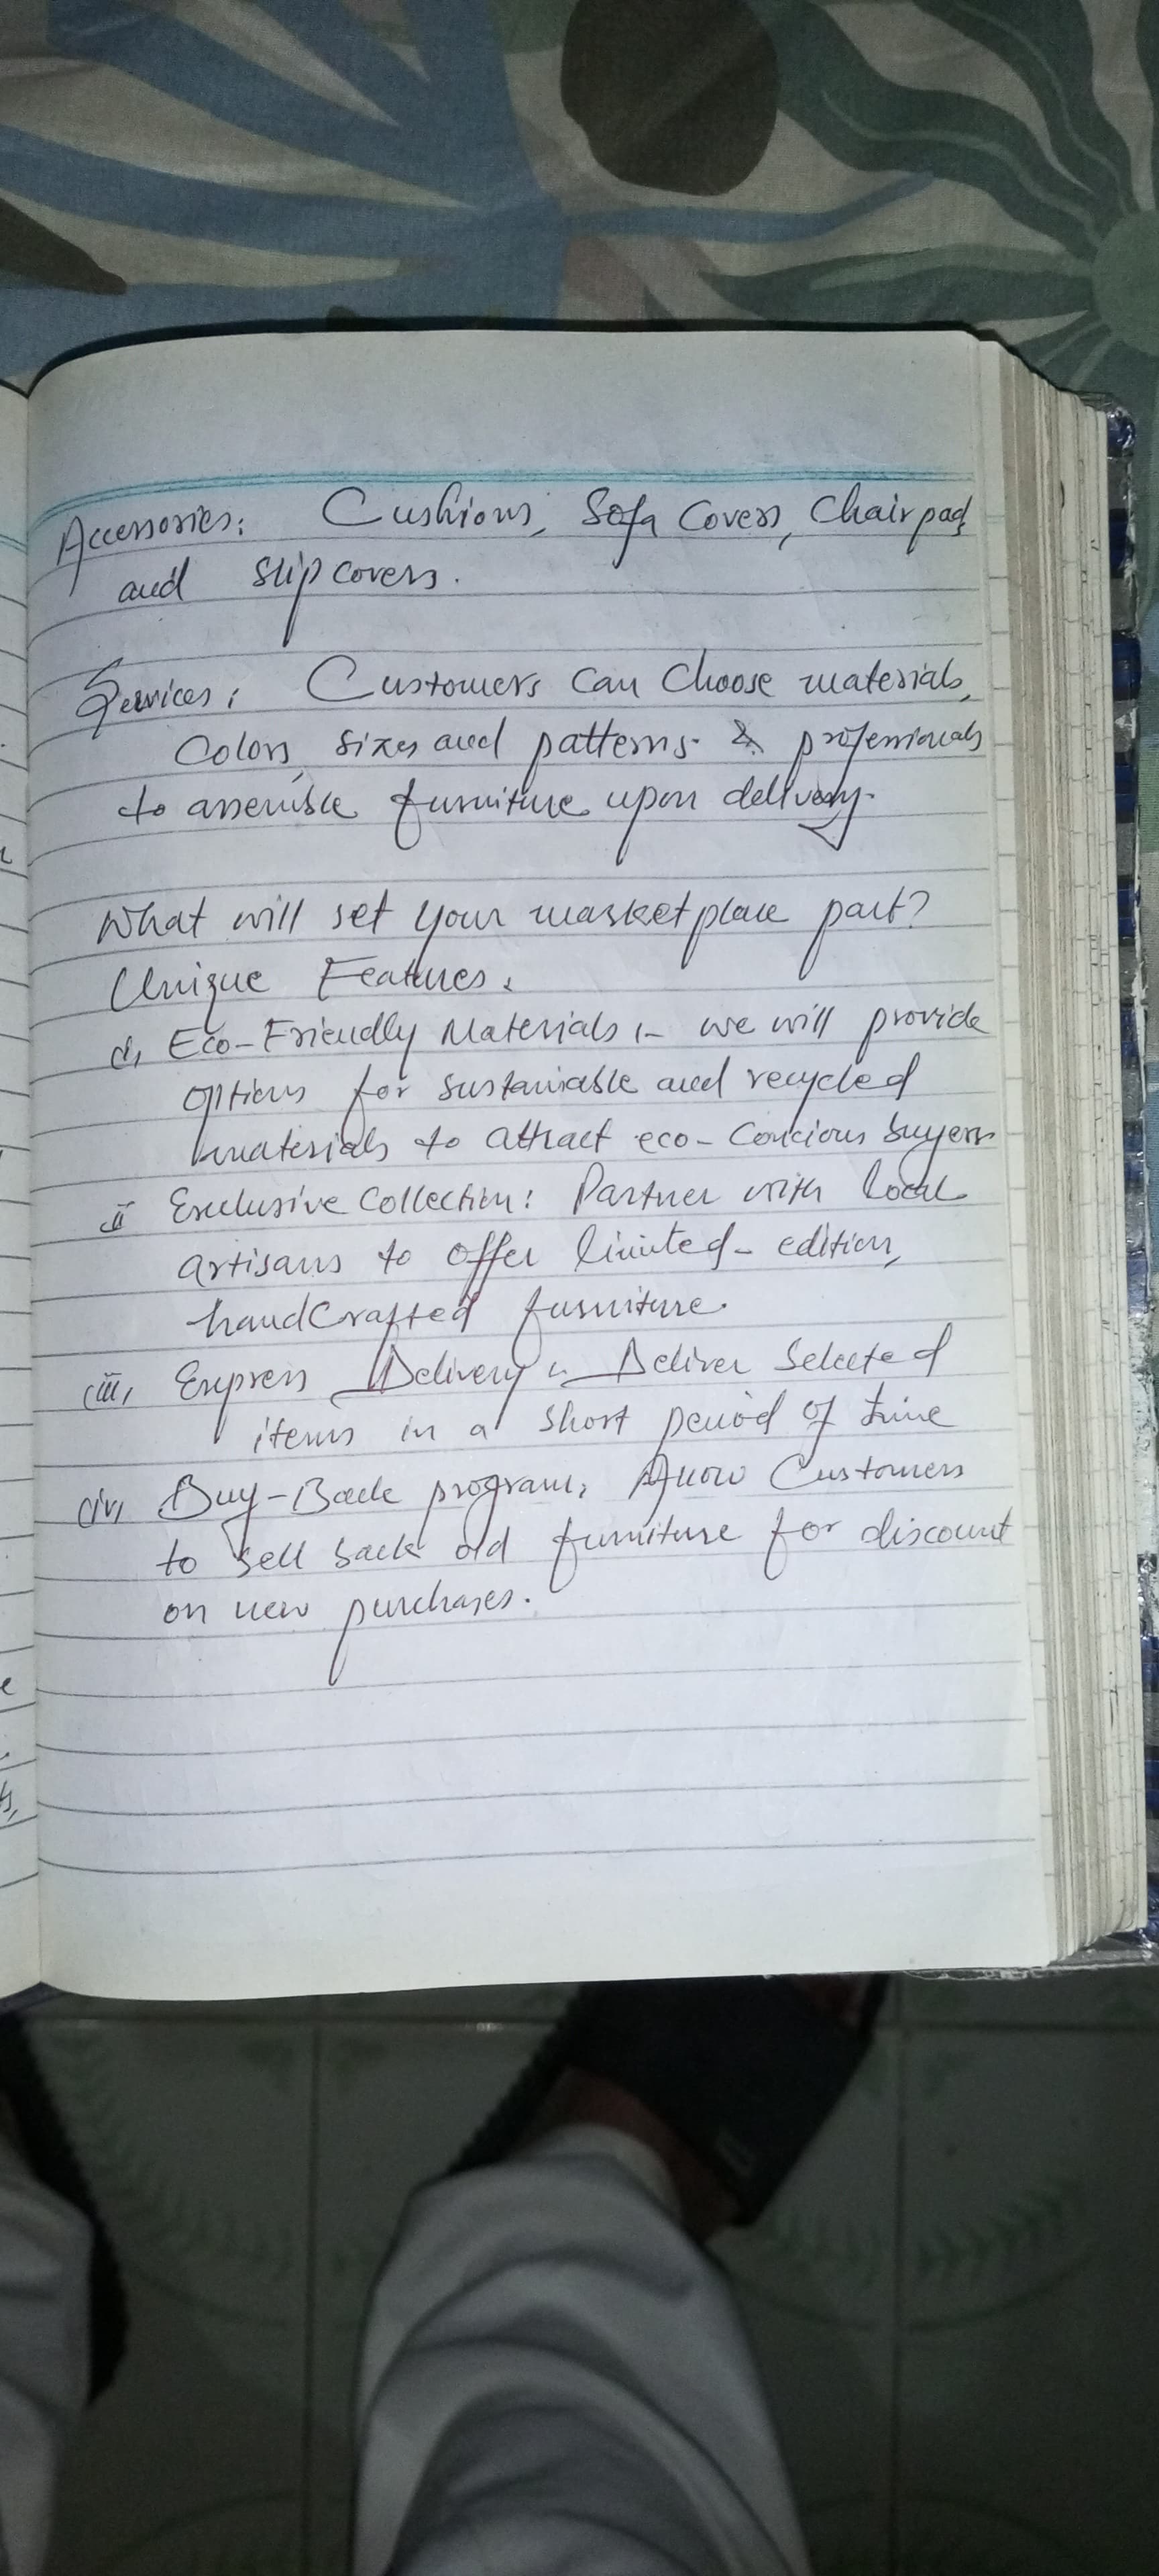 Accessories: Cushions, Sofa Covers, Chair pad,
and slip covers.
Services: Customers can choose materials,
Colors, sizes and patterns. & professionals
to assemble furniture upon delivery.
What will set your marketplace part?
Unique Features.
(i) Eco-Friendly Materials :- we will provide
options for sustainable and recycled
materials to attract eco-concious buyers
ii Exclusive Collection: Partner with local
artisans to offer limited-edition,
handcrafted furniture.
(iii) Express Delivery :- Deliver Selected
items in a short period of time
(iv) Buy-Back program: Allow Customers
to sell back old furniture for discount
on new purchases.